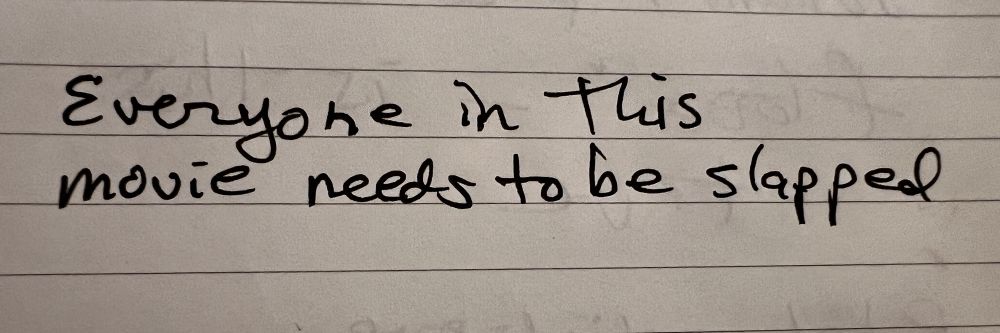 Everyone in this
movie needs to be slapped